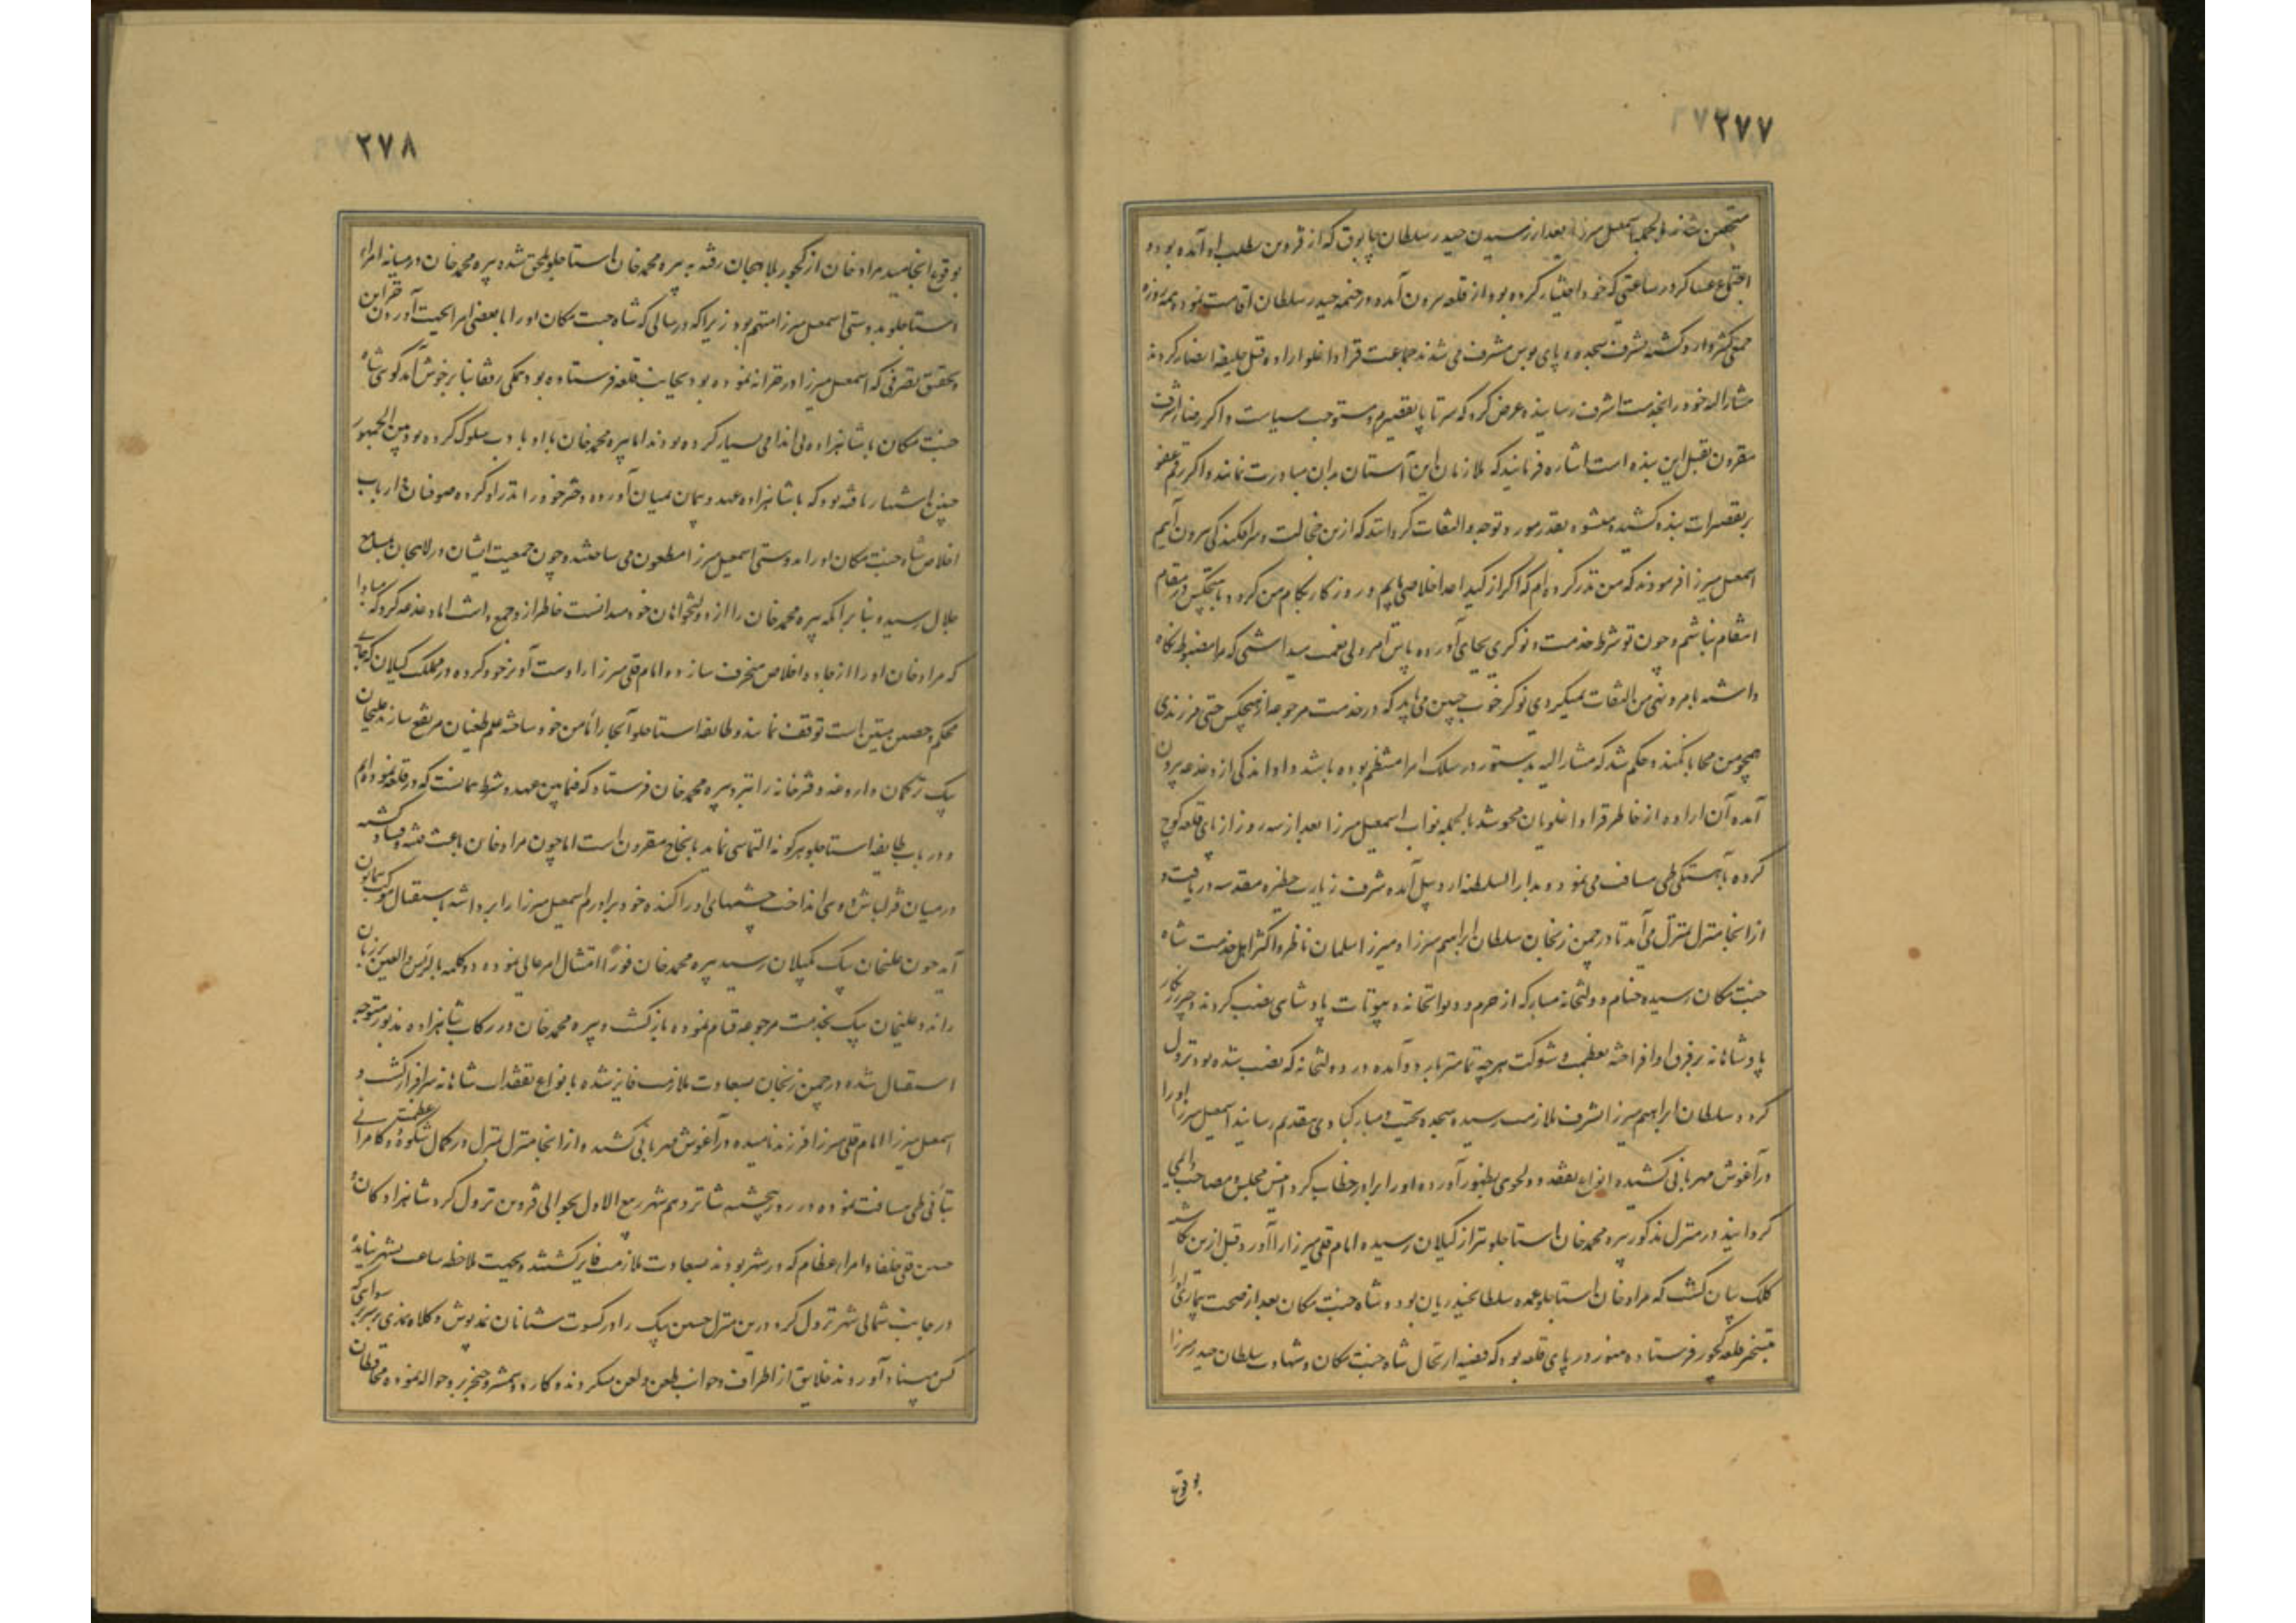 ۲۷۷
متحصن شدند بالجمله اسمعیل میرزا بعد از رسیدن حیدر سلطان چابوق که از قزوین بطلب او آمده بود و
اجتماع عساکر در ساعتی که خود اختیار کرده بود از قلعه بیرون آمده در خیمه حیدر سلطان اقامت نموده همه روزه
جمعی کثیر وارد گشته بشرف سجده و پای بوس مشرف می شدند جماعت قرا داغلو اراده قتل خلیفه انصار کردند
مشارالیه خود را بخدمت اشرف رسانیده عرض کرد که سر تا پا تقصیرم و مستوجب سیاست و اگر رضاء اشرف
مقرون بقتل این بنده است اشاره فرمایند که ملازمان این آستان بدان مبادرت نمایند و اگر رقم عفو
بر تقصیرات بنده کشیده میشود بقدر مورد توجه و التفات گردانند که ازین خجالت و سرافکندگی بیرون آیم
اسمعیل میرزا فرمودند که من نذر کرده ام که اگر از کید اعدا خلاصی یابم و روزگار بکام من گردد با هیچکس در مقام
انتقام نباشم و چون تو شرط خدمت و نوکری بجای آورده پاس امر ولی نعمت میداشتی که مرا مضبوط نگاه
داشته بامر و نهی من التفات نمیکردی نوکر خوب چنین می باید که در خدمت مرجوعه از هیچکس حتی فرزندی
همچو من محابا نکند و حکم شد که مشارالیه بدستور در سلک امرا منتظم بوده باشد و او اندکی از دغدغه بیرون
آمده آن اراده از خاطر قرا داغلویان محو شد بالجمله نواب اسمعیل میرزا بعد از سه روز از پای قلعه کوچ
کرده بآهستگی طی مسافت می نمود و بدار السلطنه اردبیل آمده شرف زیارت حظیره مقدسه دریافت و
از آنجا منزل بمنزل می آمد تا در چمن زنجان سلطان ابراهیم میرزا و میرزا سلمان ناظر و اکثر اهل خدمت شاه
جنت مکان رسیده خیام و دولتخانه مبارکه از حرم و دیوانخانه و بیوتات پادشاهی نصب کردند و چتر زرنگار
پادشاهانه بر فرق او افراخته بعظمت و شوکت هر چه تمامتر بار دو آمده در دولتخانه که نصب شده بود نزول
کرد و سلطان ابراهیم میرزا بشرف ملازمت رسیده سجده تحیت و مبارکبادی بتقدیم رسانید اسمعیل میرزا او را
در آغوش مهربانی کشیده انواع تفقد و دلجوئی بظهور آورده او را برادر خطاب کرد و انیس مجلس و مصاحب دایمی
گردانید و در منزل مذکور پیره محمد خان استاجلو نیز از گیلان رسیده امام قلی میرزا را آورد و قبل ازین نگاشته
کلک بیان گشت که مراد خان استاجلو عمده سلطانحیدریان بود و شاه جنت مکان بعد از صحت بیماری او را
بتسخیر قلعه کجور فرستاده هنوز در پای قلعه بود که قضیه ارتحال شاه جنت مکان و شهادت سلطان حیدر میرزا
بوقوع
۲۷۸
بوقوع انجامید مراد خان از کجور بلاهیجان رفته به پیره محمد خان استاجلو ملحق شده پیره محمد خان در میانه امراء
استاجلو بدوستی اسمعیل میرزا متهم بود زیرا که در سالی که شاه جنت مکان او را با بعضی امرا بجهت آوردن خزاین
و تحقیق تصرفی که اسمعیل میرزا در خزانه نموده بود بجانب قلعه فرستاده بود همگی رفقا بنابر خوش آمدگوئی شاه
جنت مکان با شاهزاده بی اندامی بسیار کرده بودند اما پیره محمد خان با او بادب سلوک کرده بود و بین الجمهور
چنین اشتهار یافته بود که با شاهزاده عهد و پیمان بمیان آورده دختر خود را نذر او کرده صوفیان و ارباب
اخلاص شاه جنت مکان او را بدوستی اسمعیل میرزا مطعون می ساختند و چون جمعیت ایشان در لاهیجان بمسامع
جلال رسیده بنا بر آنکه پیره محمد خان را از دولتخواهان خود میدانست خاطر ازو جمع داشت اما دغدغه کرد که مبادا
که مراد خان او را از جاده اخلاص منحرف سازد و امام قلی میرزا را دست آویز خود کرده در مملکت گیلان که جای
محکم و حصین متین است توقف نمایند و طایفه استاجلو آنجا را مامن خود ساخته علم طغیان مرتفع سازند علیخان
بیک ترکمان داروغه دفترخانه را نزد پیره محمد خان فرستاد که فیمابین عهد و شرط همانست که در قلعه نموده ایم
و در باب طایفه استاجلو هر گونه التماسی نماید بانجاح مقرون است اما چون مراد خان باعث فتنه و فساد گشته
در میان قزلباش دوئی انداخت چشمهای او را کنده خود برادرم اسمعیل میرزا را برداشته باستقبال موکب همایون
آید چون علیخان بیک بگیلان رسید پیره محمد خان فوراً امتثال امر عالی نموده دو کلمه بالراس والعین بر زبان
رانده علیخان بیک بخدمت مرجوعه قیام نموده بازگشت و پیره محمد خان در رکاب شاهزاده مذبور متوجه
استقبال شده در چمن زنجان بسعادت ملازمت فایز شده بانواع تفقدات شاهانه سرافراز گشت و
اسمعیل میرزا امام قلی میرزا فرزند نامیده در آغوش مهربانی کشیده از آنجا منزل بمنزل در کمال شکوه و عظمت و کامرانی
بتأنی طی مسافت نموده در روز پنجشنبه شانزدهم شهر ربیع الاول بحوالی قزوین نزول کرد شاهزادگان
حسین قلی خلفا و امراء عظام که در شهر بودند بسعادت ملازمت فایز گشتند و بجهت ملاحظه ساعت بشهر نیامده
در جانب شمالی شهر نزول کرد درین منزل حسین بیک را در کسوت شتابان نمدپوش و کلاه نمدی بر سر سوای که
کس میناد آوردند خلایق از اطراف و جوانب طعن و لعن میکردند و کارد و شمشیر و خنجر برو حواله نموده محافظان